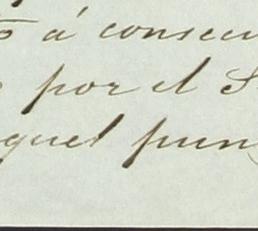 á consecu
por el S
quel pun